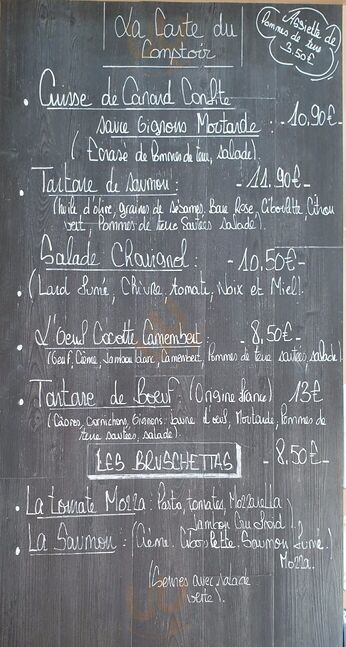 La Carte du
Comptoir
Assiette de
Pommes de terre
3.50€
• Cuisse de Canard Confite
sauce Oignons Moutarde : - 10.90€ -
(Ecrasé de Pommes de terre, salade).
• Tartare de saumon : - 11.90€ -
(huile d'olive, graines de sésames, Baie Rose, Ciboulette, Citron
vert, Pommes de terre Sautées salade).
Salade Chavignol : - 10,50€ -
• (Lard fumé, Chèvre, tomate, Noix et Miel.
• L'Oeuf Cocotte Camembert : - 8,50€ -
(Oeuf, Crème, Jambon blanc, Camembert, Pommes de terre sautées salade).
• Tartare de Boeuf : (Origine france) 13€
(Câpres, Cornichons, Oignons, Jaune d'oeuf, Moutarde, Pommes de
terre sautées, salade).
LES BRUSCHETTAS - 8.50€ -
• La tomate Mozza : Pesto, tomates, Mozzarella
Jambon Cru froid).
• La Saumon : (Crème. Ciboulette. Saumon fumé.
Mozza.
(Servies avec salade
verte).